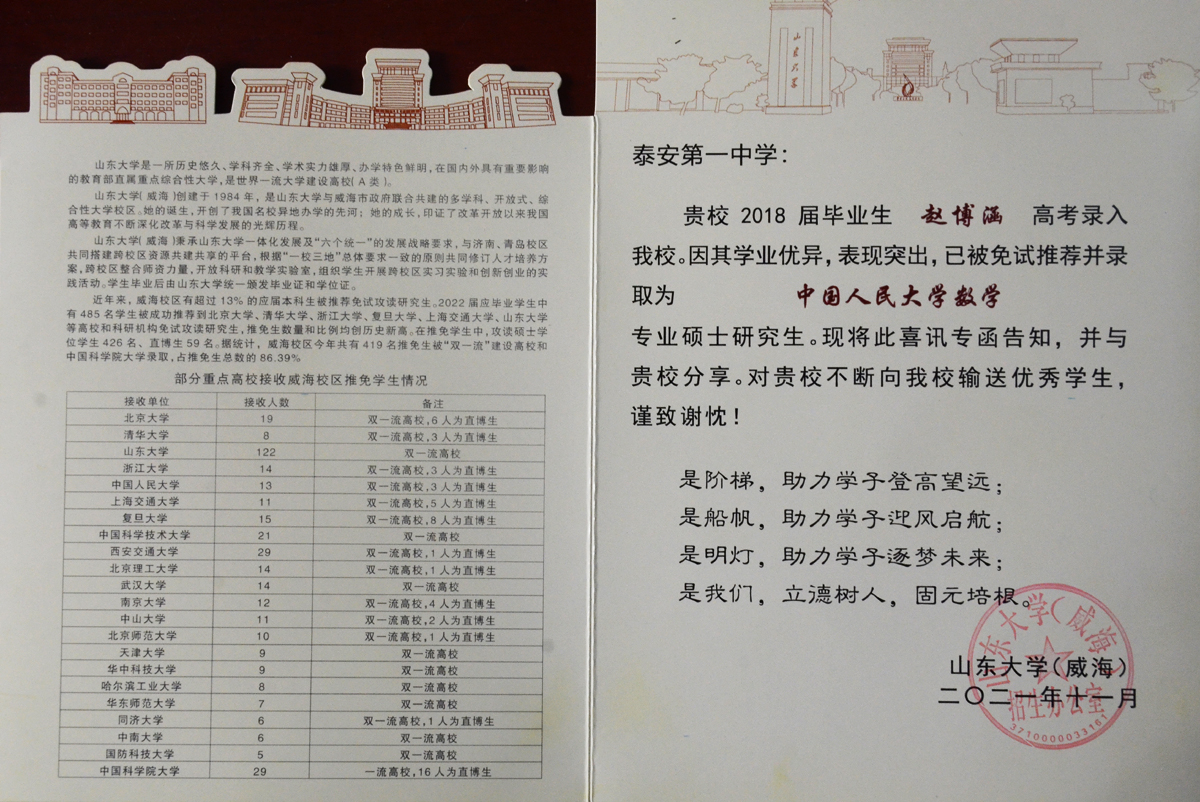 山东大学是一所历史悠久、学科齐全、学术实力雄厚、办学特色鲜明,在国内外具有重要影响
的教育部直属重点综合性大学,是世界一流大学建设高校(A类)。
山东大学(威海)创建于1984年,是山东大学与威海市政府联合共建的多学科、开放式、综
合性大学校区。她的诞生,开创了我国名校异地办学的先河;她的成长,印证了改革开放以来我国
高等教育不断深化改革与科学发展的光辉历程。
山东大学(威海)秉承山东大学一体化发展及“六个统一”的发展战略要求,与济南、青岛校区
共同搭建跨校区资源共建共享的平台,根据“一校三地”总体要求一致的原则共同修订人才培养方
案,跨校区整合师资力量,开放科研和教学实验室,组织学生开展跨校区实习实验和创新创业的实
践活动。学生毕业后由山东大学统一颁发毕业证和学位证。
近年来,威海校区有超过13%的应届本科生被推荐免试攻读研究生。2022届应毕业学生中
有485名学生被成功推荐到北京大学、清华大学、浙江大学、复旦大学、上海交通大学、山东大学
等高校和科研机构免试攻读研究生,推免生数量和比例均创历史新高。在推免学生中,攻读硕士学
位学生426名、直博生59名。据统计,威海校区今年共有419名推免生被“双一流”建设高校和
中国科学院大学录取,占推免生总数的86.39%
部分重点高校接收威海校区推免学生情况
接收单位 接收人数 备注
北京大学 19 双一流高校,6人为直博生
清华大学 8 双一流高校,3人为直博生
山东大学 122 双一流高校
浙江大学 14 双一流高校,3人为直博生
中国人民大学 13 双一流高校,3人为直博生
上海交通大学 11 双一流高校,5人为直博生
复旦大学 15 双一流高校,8人为直博生
中国科学技术大学 21 双一流高校
西安交通大学 29 双一流高校,1人为直博生
北京理工大学 14 双一流高校,1人为直博生
武汉大学 14 双一流高校
南京大学 12 双一流高校,4人为直博生
中山大学 11 双一流高校,2人为直博生
北京师范大学 10 双一流高校,1人为直博生
天津大学 9 双一流高校
华中科技大学 9 双一流高校
哈尔滨工业大学 8 双一流高校
华东师范大学 7 双一流高校
同济大学 6 双一流高校,1人为直博生
中南大学 6 双一流高校
国防科技大学 5 双一流高校
中国科学院大学 29 一流高校,16人为直博生
山东大学
泰安第一中学:
贵校2018届毕业生 赵博涵 高考录入
我校。因其学业优异,表现突出,已被免试推荐并录
取为 中国人民大学数学
专业硕士研究生。现将此喜讯专函告知,并与
贵校分享。对贵校不断向我校输送优秀学生,
谨致谢忱!
是阶梯,助力学子登高望远;
是船帆,助力学子迎风启航;
是明灯,助力学子逐梦未来;
是我们,立德树人,固元培根。
山东大学(威海)
二〇二一年十一月
山东大学(威海)
招生办公室
3710000033161